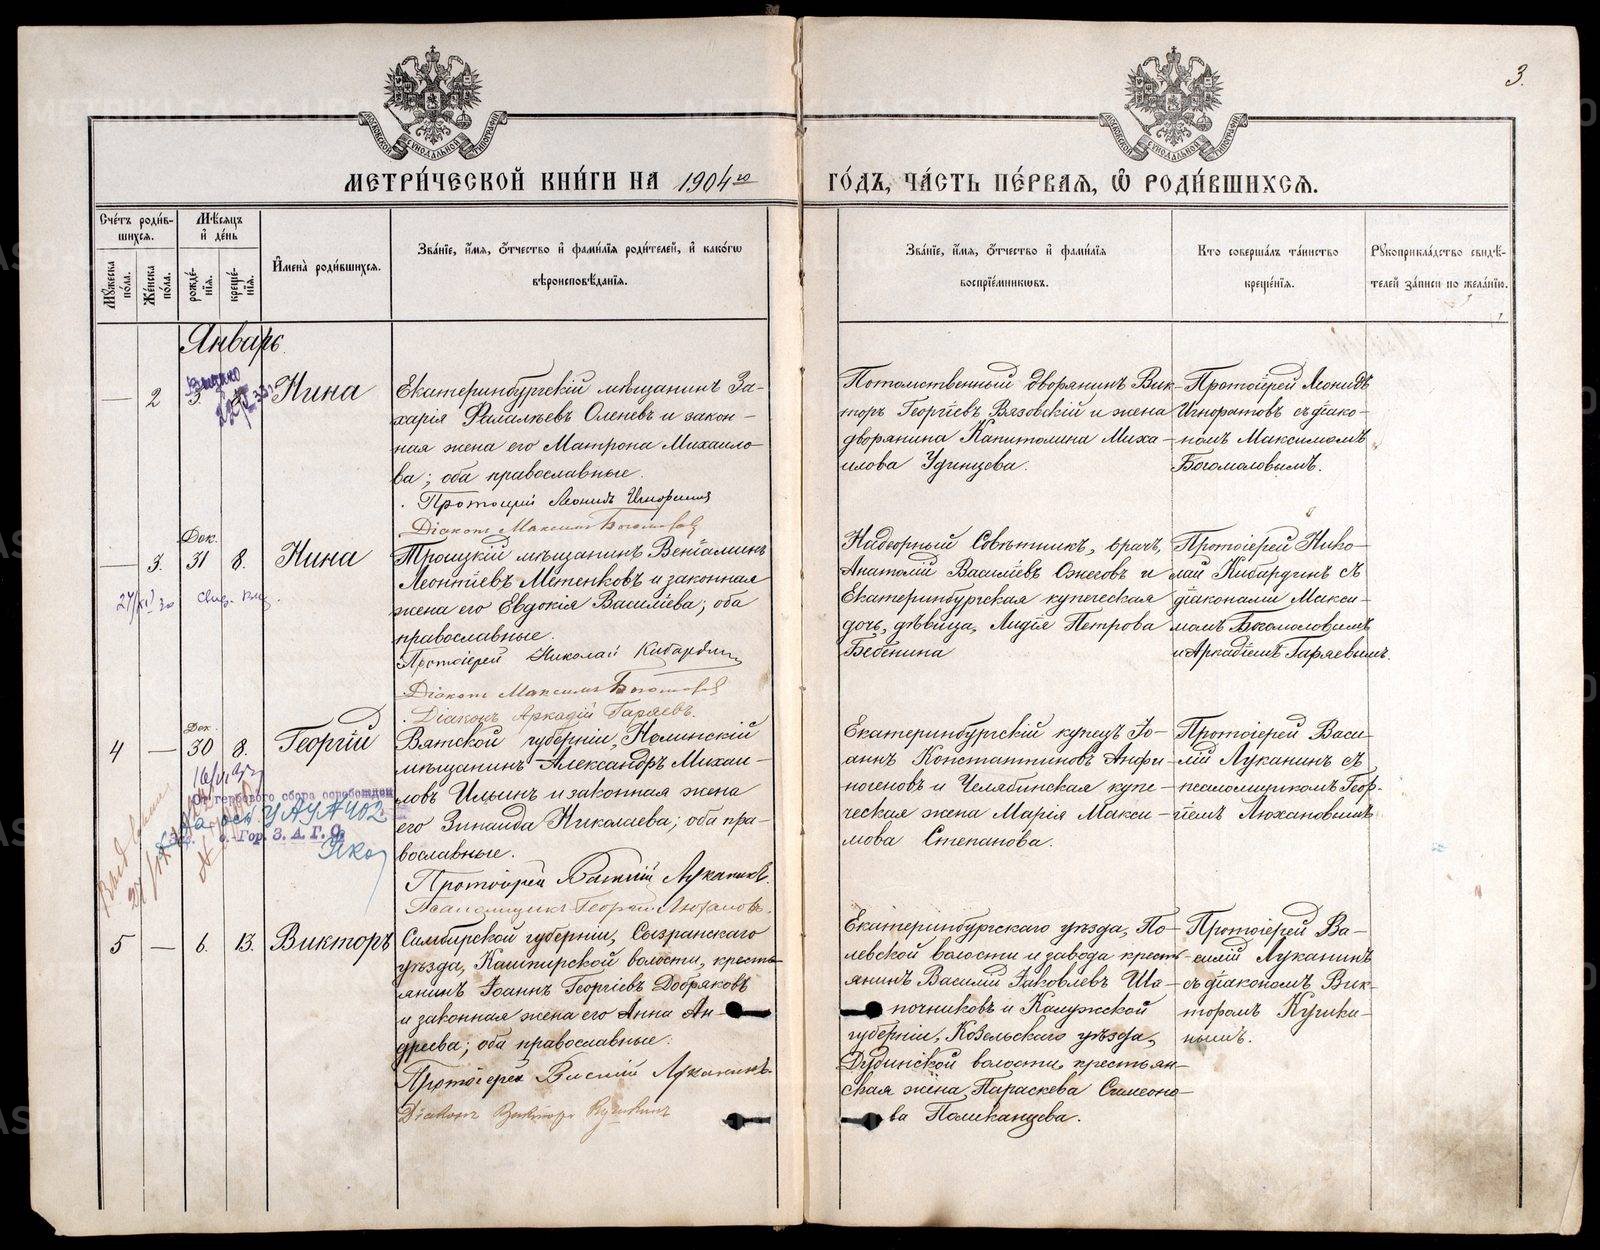 3.
МОСКОВСКОЙ СѴНОДАЛЬНОЙ ТИПОГРАФІИ
МОСКОВСКОЙ СѴНОДАЛЬНОЙ ТИПОГРАФІИ
МЕТРИ́ЧЕСКОЙ КНИ́ГИ НА 1904 го ГО́ДЪ, ЧА́СТЬ ПЕ́РВАЯ, Ѽ РОДИ́ВШИХСЯ.
Сче́тъ роди́в-
шихся.
Мꙋ́жеска по́ла.
Же́нска по́ла.
Мѣ́сяцъ
и҆ де́нь
рожде́-
нїя.
креще́-
нїя.
И҆мена̀ роди́вшихся.
Зва́нїе, и҆́мя, ѻ҆́тчество и҆ фами́лїя роди́телей, и҆ како́гѡ
вѣроисповѣ́данїя.
Зва́нїе, и҆́мя, ѻ҆́тчество и҆ фами́лїя
воспрїе́мникѡвъ.
Кто соверша́лъ та́инство
креще́нїя.
Рꙋкоприкла́дство свидѣ́-
телей за́писи по жела́нїю.
Январь.
— 2 3.
Нина
Екатеринбургскій мѣщанинъ За-
харія Фемалѣевъ Оленевъ и закон-
ная жена его Матрона Михаило-
ва; оба православные.
Протоіерей Леонидъ Игноратовъ
Діаконъ Максимъ Богомоловъ
Потомственный дворянинъ Вик-
торъ Георгіевъ Вязовскій и жена
дворянина Капитолина Миха-
илова Удинцева.
Протоіерей Леонидъ
Игноратовъ съ діако-
номъ Максимомъ
Богомоловымъ.
Дек.
— 3. 31 8.
Нина
Троицкій мѣщанинъ Веніаминъ
Леонтіевъ Метенковъ и законная
жена его Евдокія Василіева; оба
православные.
Протоіерей Николай Кибардинъ
Діаконъ Максимъ Богомоловъ
Діаконъ Аркадій Гаряевъ.
Надворный Совѣтникъ, врачъ,
Анатолій Василіевъ Ожеговъ и
Екатеринбургская купеческая
дочь, дѣвица, Лидія Петрова
Бебенина
Протоіерей Нико-
лай Кибардинъ съ
діаконами Макси-
момъ Богомоловымъ
и Аркадіемъ Гаряевымъ.
Дек.
4 — 30 8.
Георгій
От гербового сбора освобожден
Гор. З.А.Г.С.
Вятской губерніи, Нолинскій
мѣщанинъ Александръ Михаи-
ловъ Ильинъ и законная жена
его Зинаида Николаева; оба пра-
вославные.
Протоіерей Василій Луканинъ.
Псаломщикъ Георгій Люхановъ.
Екатеринбургскій купецъ Іо-
аннъ Константиновъ Анфи-
ногеновъ и Челябинская купе-
ческая жена Марія Макси-
мова Степанова.
Протоіерей Васи-
лій Луканинъ съ
псаломщикомъ Геор-
гіемъ Люхановымъ
5 — 6. 13.
Викторъ
Симбирской губерніи, Сызранскаго
уѣзда, Кашпирской волости, кресть-
янинъ Іоаннъ Георгіевъ Добряковъ
и законная жена его Анна Ан-
дреева; оба православные.
Протоіерей Василій Луканинъ
Діаконъ Викторъ Кушкинъ
Екатеринбургскаго уѣзда, По-
левской волости и завода кресть-
янинъ Василій Іаковлевъ Ша-
почниковъ и Калужской
губерніи, Козельскаго уѣзда,
Дудинской волости, крестьян-
ская жена Параскева Симеоно-
ва Поликанцева.
Протоіерей Ва-
силій Луканинъ
съ діакономъ Вик-
торомъ Кушки-
нымъ.